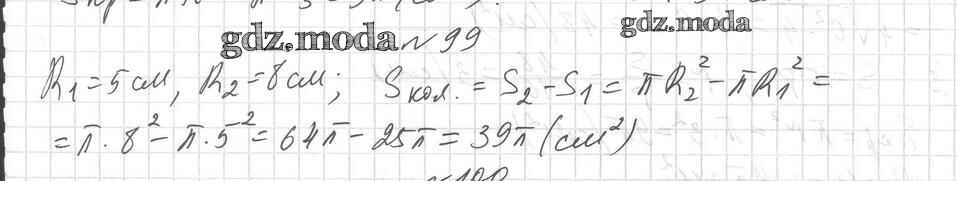 gdz.moda № 99 gdz.moda
R₁ = 5 см, R₂ = 8 см; Sкол. = S₂ - S₁ = πR₂² - πR₁² =
= π · 8² - π · 5² = 64π - 25π = 39π (см²)
№ 100